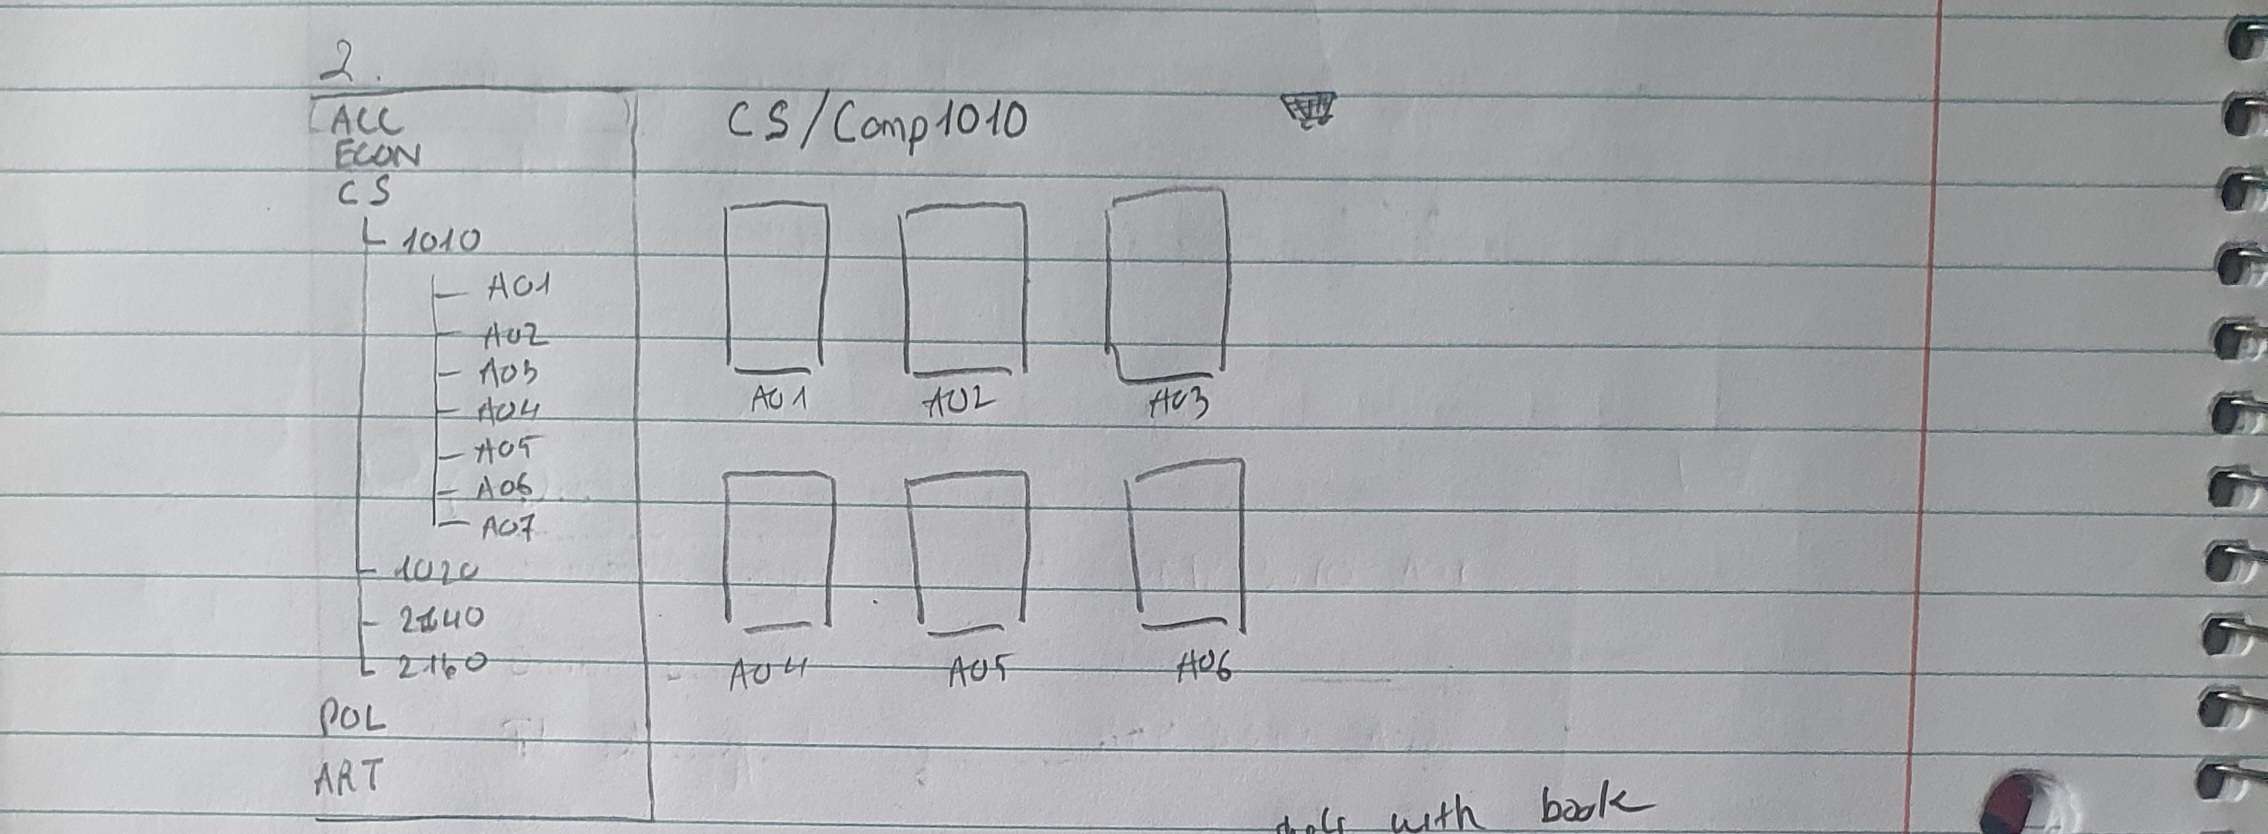 2.
ACC
ECON
CS
1010
A01
A02
A03
A04
A05
A06
A07
1020
2140
2160
POL
ART
CS/Comp1010
A01 A02 A03
A04 A05 A06
with book